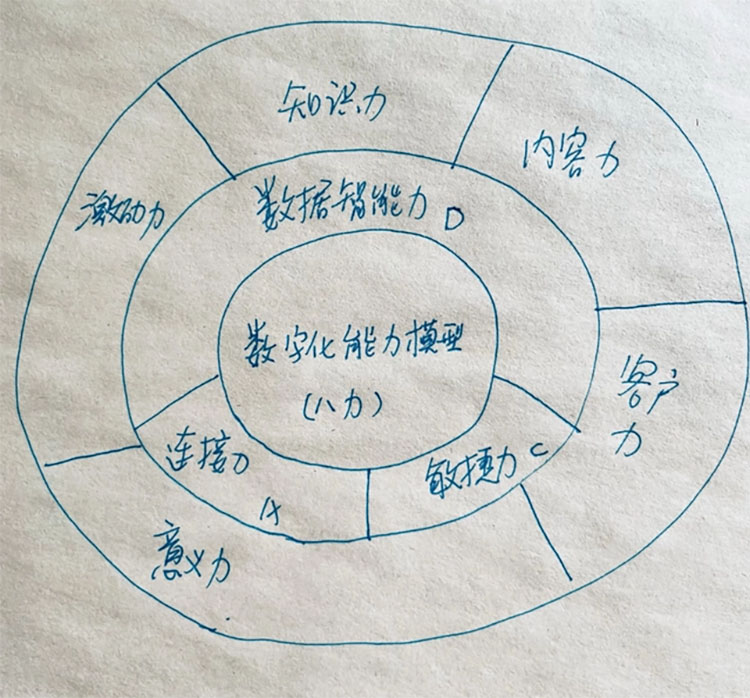 知识力
内容力
激励力
数据智能力 D
数字化能力模型
(八力)
客户
力
连接力
A
敏捷力 C
意义力